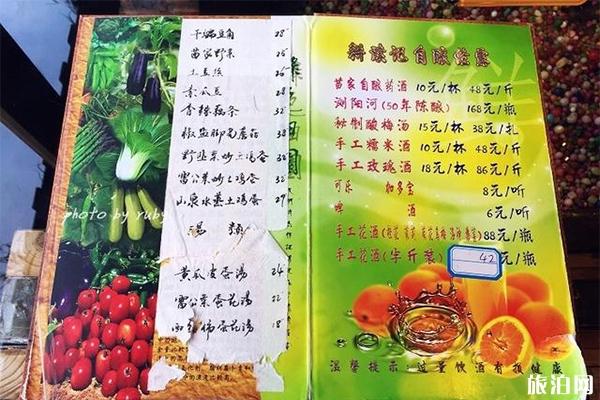 干煸豆角 28
苗家野菜 25
土豆丝 26
素瓜豆 28
香辣藕条 32
椒盐脚毛蘑菇 38
野韭菜炒土鸡蛋 32
雷公菜炒土鸡蛋 32
山泉水蒸土鸡蛋 29
汤类
黄瓜皮蛋汤 24
雷公菜蛋花汤 22
西红柿蛋花汤 18
photo by ruby
自酿
苗家自酿药酒 10元/杯 48元/斤
浏阳河(50年陈酿) 168元/瓶
秘制酸梅汤 15元/杯 38元/扎
手工糯米酒 10元/杯 48元/斤
手工玫瑰酒 18元/杯 86元/斤
可乐 加多宝 8元/听
啤酒 6元/听
手工花酒 88元/瓶
手工花酒(半斤装) 42
温馨提示:过量饮酒有损健康
旅泊网